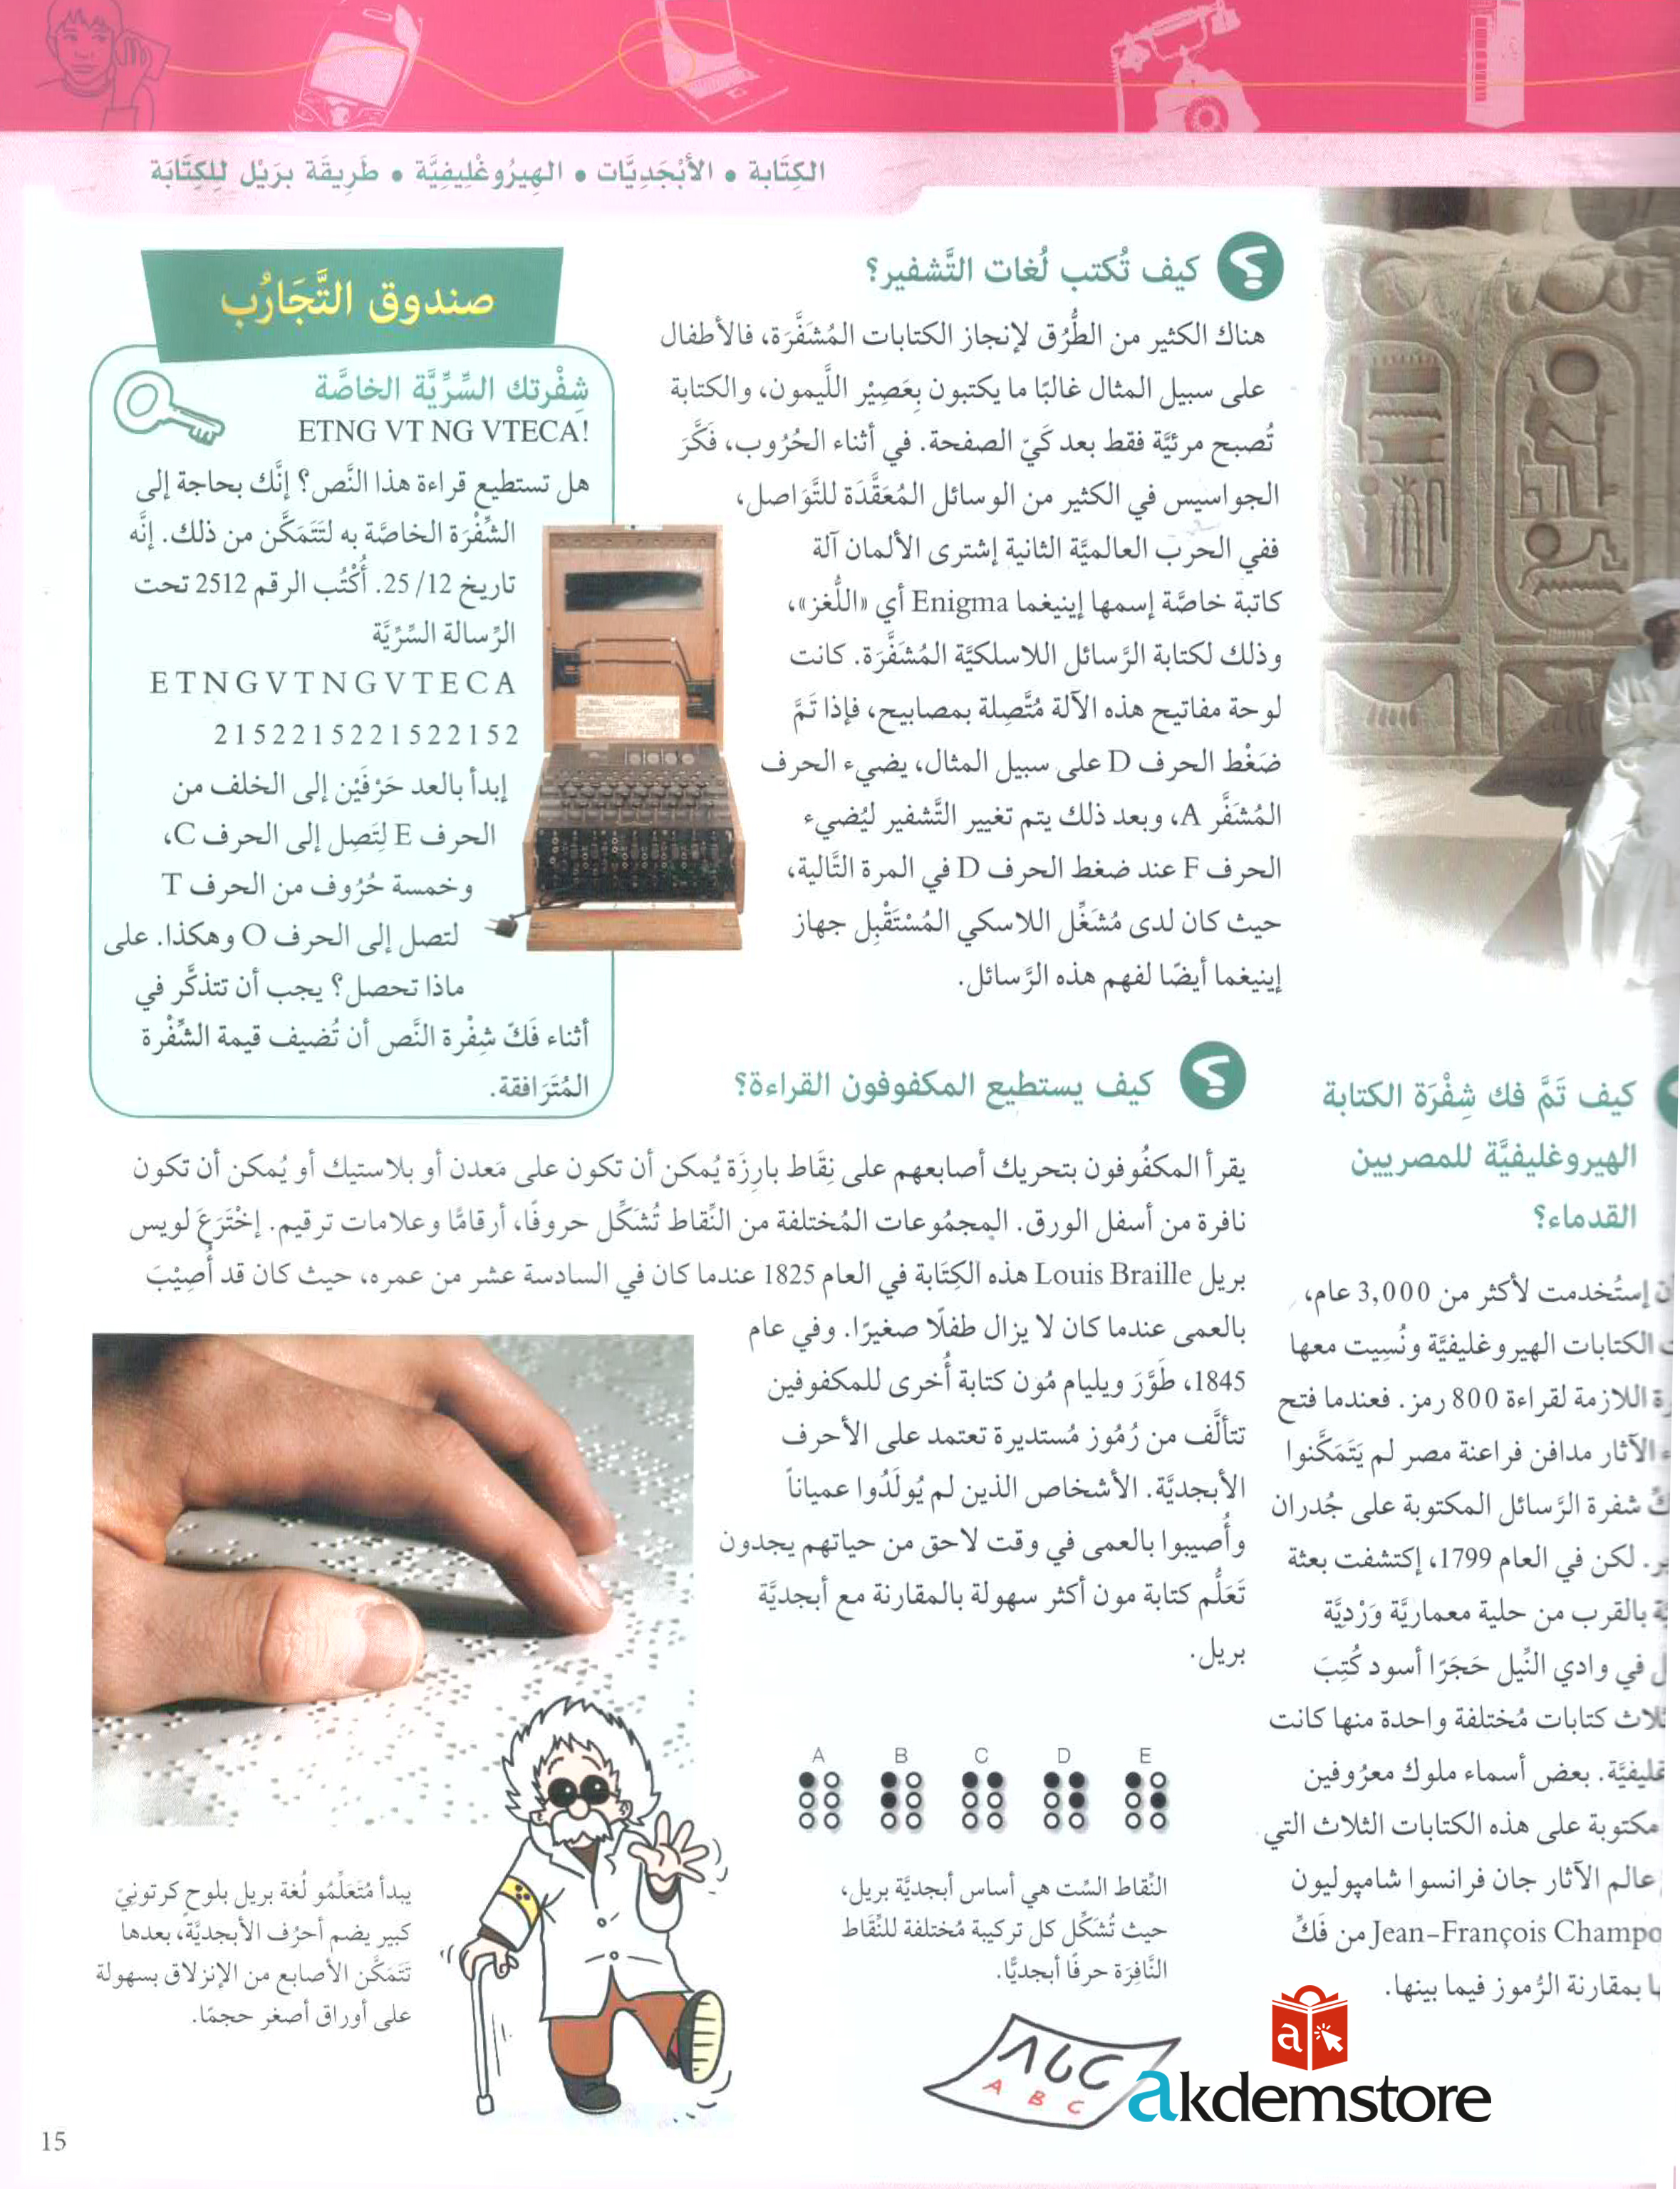 الكِتَابة • الأَبْجَدِيَّات • الهِيرُوغْلِيفِيَّة • طَرِيقَة برَيْل لِلكِتَابَة
كيف تُكتب لُغات التَّشفير؟
هناك الكثير من الطُّرُق لإنجاز الكتابات المُشَفَّرَة، فالأطفال
على سبيل المثال غالبًا ما يكتبون بِعَصِيْر اللَّيمون، والكتابة
تُصبح مرئيَّة فقط بعد كَيّ الصفحة. في أثناء الحُرُوب، فَكَّرَ
الجواسيس في الكثير من الوسائل المُعَقَّدَة للتَّوَاصل،
ففي الحرب العالميَّة الثانية إشترى الألمان آلة
كاتبة خاصَّة إسمها إينيغما Enigma أي «اللُّغز»،
وذلك لكتابة الرَّسائل اللاسلكيَّة المُشَفَّرَة. كانت
لوحة مفاتيح هذه الآلة مُتَّصِلة بمصابيح، فإذا تَمَّ
ضَغْط الحرف D على سبيل المثال، يضيء الحرف
المُشَفَّر A، وبعد ذلك يتم تغيير التَّشفير ليُضيء
الحرف F عند ضغط الحرف D في المرة التَّالية،
حيث كان لدى مُشَغِّل اللاسكي المُسْتَقْبِل جهاز
إينيغما أيضًا لفهم هذه الرَّسائل.
صندوق التَّجَارُب
شِفْرتك السِّرِّيَّة الخاصَّة
ETNG VT NG VTECA!
هل تستطيع قراءة هذا النَّص؟ إنَّك بحاجة إلى
الشِّفْرَة الخاصَّة به لتَتَمَكَّن من ذلك. إنَّه
تاريخ 12/ 25. أُكْتُب الرقم 2512 تحت
الرِّسالة السِّرِّيَّة
E T N G V T N G V T E C A
2 1 5 2 2 1 5 2 2 1 5 2 2 1 5 2
إبدأ بالعد حَرْفَيْن إلى الخلف من
الحرف E لِتَصِل إلى الحرف C،
وخمسة حُرُوف من الحرف T
لتصل إلى الحرف O وهكذا. على
ماذا تحصل؟ يجب أن تتذكَّر في
أثناء فَكّ شِفْرة النَّص أن تُضيف قيمة الشِّفْرة
المُتَرَافقة.
كيف تَمَّ فك شِفْرَة الكتابة
الهيروغليفيَّة للمصريين
القدماء؟
إستُخدمت لأكثر من 3,000 عام،
الكتابات الهيروغليفيَّة ونُسِيت معها
اللازمة لقراءة 800 رمز. فعندما فتح
الآثار مدافن فراعنة مصر لم يَتَمَكَّنوا
شفرة الرَّسائل المكتوبة على جُدران
. لكن في العام 1799، إكتشفت بعثة
بالقرب من حلية معماريَّة وَرْديَّة
في وادي النِّيل حَجَرًا أسود كُتِبَ
كتابات مُختلفة واحدة منها كانت
. بعض أسماء ملوك معرُوفين
مكتوبة على هذه الكتابات الثلاث التي
عالم الآثار جان فرانسوا شامپوليون
Jean-François Champo من فَكِّ
بمقارنة الرُّموز فيما بينها.
كيف يستطيع المكفوفون القراءة؟
يقرأ المكفُوفون بتحريك أصابعهم على نِقَاط بارِزَة يُمكن أن تكون على مَعدن أو بلاستيك أو يُمكن أن تكون
نافرة من أسفل الورق. المجمُوعات المُختلفة من النِّقاط تُشَكِّل حروفًا، أرقامًا وعلامات ترقيم. إخْتَرَعَ لويس
بريل Louis Braille هذه الكِتَابة في العام 1825 عندما كان في السادسة عشر من عمره، حيث كان قد أُصِيْبَ
بالعمى عندما كان لا يزال طفلًا صغيرًا. وفي عام
1845، طَوَّرَ ويليام مُون كتابة أُخرى للمكفوفين
تتألَّف من رُمُوز مُستديرة تعتمد على الأحرف
الأبجديَّة. الأشخاص الذين لم يُولَدُوا عمياناً
وأُصيبوا بالعمى في وقت لاحق من حياتهم يجدون
تَعَلُّم كتابة مون أكثر سهولة بالمقارنة مع أبجديَّة
بريل.
A B C D E
النِّقاط السِّت هي أساس أبجديَّة بريل،
حيث تُشَكِّل كل تركيبة مُختلفة للنِّقَاط
النَّافِرَة حرفًا أبجديًّا.
يبدأ مُتَعَلِّمُو لُغة بريل بلوحٍ كرتونيّ
كبير يضم أحرُف الأبجديَّة، بعدها
تَتَمَكَّن الأصابع من الإنزلاق بسهولة
على أوراق أصغر حجمًا.
A B C
akdemstore
15